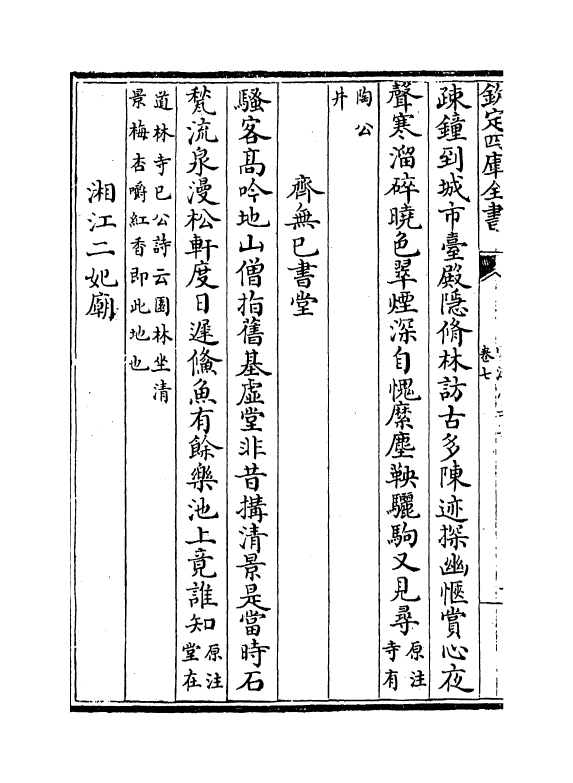 欽定四庫全書
卷七
疎鐘到城市臺殿隱脩林訪古多陳迹探幽愜賞心夜
聲寒溜碎曉色翠煙深自愧縻塵鞅驪駒又見尋原注寺有
陶公
井
齊無已書堂
騷客高吟地山僧指舊基虛堂非昔搆清景是當時石
甃流泉漫松軒度日遲鯈魚有餘樂池上竟誰知原注堂在
道林寺已公詩云園林坐清
景梅杏嚼紅香即此地也
湘江二妃廟